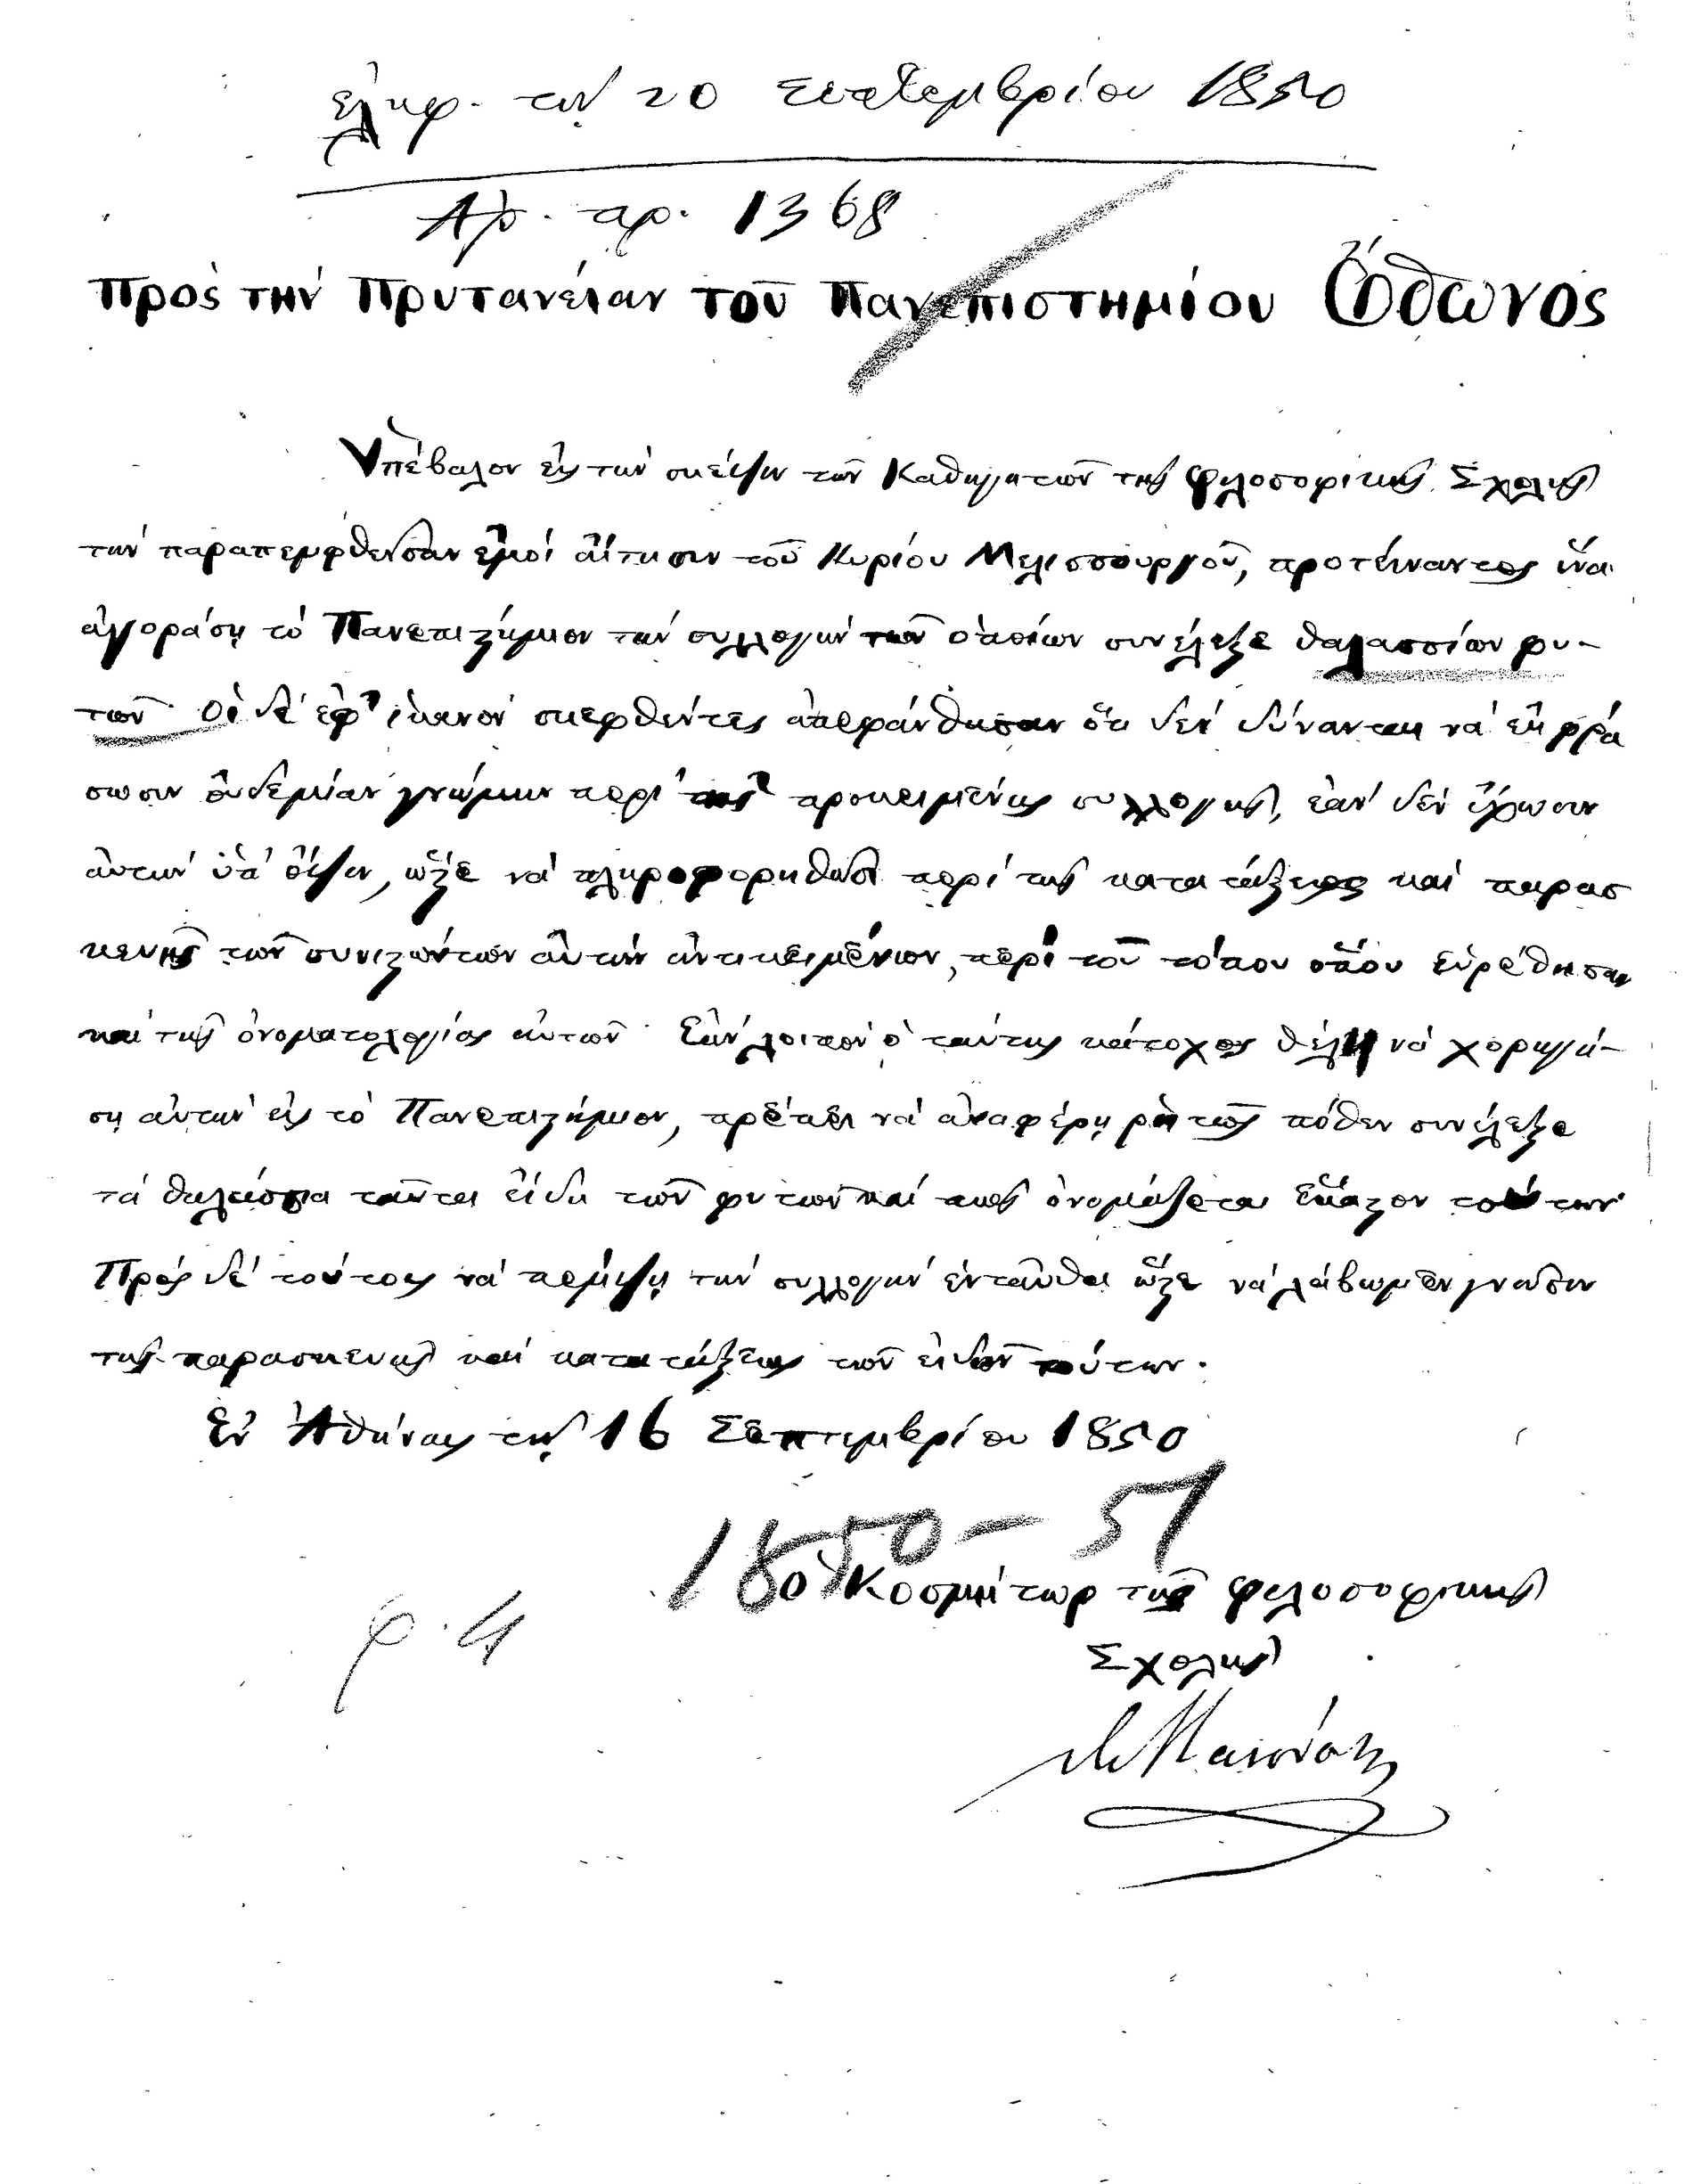 ἐλήφ. τῇ 20 Σεπτεμβρίου 1850
Ἀρ. πρ. 1368
Πρὸς τὴν Πρυτανείαν τοῦ Πανεπιστημίου Ὄθωνος
Ὑπέβαλον εἰς τὴν σκέψιν τῶν Καθηγητῶν τῆς φιλοσοφικῆς Σχολῆς
τὴν παραπεμφθεῖσαν ἐμοὶ αἴτησιν τοῦ Κυρίου Μελισσουργοῦ, προτείναντος ἵνα
ἀγοράσῃ τὸ Πανεπιστήμιον τὴν συλλογὴν τῶν ὁποίων συνέλεξε θαλασσίων φυ-
τῶν· Οἱ δὲ ἐφ' ἱκανὸν σκεφθέντες ἀπεφάνθησαν ὅτι δὲν δύνανται νὰ ἐκφρά
σωσιν οὐδεμίαν γνώμην περὶ τῆς προκειμένης συλλογῆς, ἐὰν δὲν ἔχωσιν
αὐτὴν ὑπ' ὄψιν, ὥστε νὰ πληροφορηθῶσι περὶ τῆς κατατάξεως καὶ παρασ
κευῆς τῶν συνιστώντων αὐτὴν ἀντικειμένων, περὶ τοῦ τόπου ὅπου εὑρέθησαν
καὶ τῆς ὀνοματολογίας αὐτῶν· Ἐὰν λοιπὸν ὁ ταύτης κάτοχος θέλῃ νὰ χορηγή-
σῃ αὐτὴν εἰς τὸ Πανεπιστήμιον, πρέπει νὰ ἀναφέρῃ ῥητῶς πόθεν συνέλεξε
τὰ θαλάσσια ταῦτα εἴδη τῶν φυτῶν καὶ πῶς ὀνομάζεται ἕκαστον τούτων·
Πρὸς δὲ τούτοις νὰ πέμψῃ τὴν συλλογὴν ἐνταῦθα ὥστε νὰ λάβωμεν γνῶσιν
τῆς παρασκευῆς καὶ κατατάξεως τῶν εἰδῶν τούτων.
Ἐν Ἀθήναις τῇ 16 Σεπτεμβρίου 1850
1850 - 51
Ὁ Κοσμήτωρ τῆς φιλοσοφικῆς
φ. 4
Σχολῆς